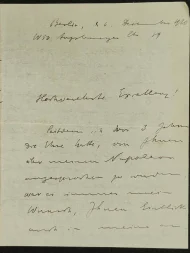 Berlin, d. 6. Dezember 19
W50. Augsburger Str 19
Hochverehrte Exzellenz!
Nachdem ich vor 3 Jahren
die Ehre hatte, von Ihnen
über meinen Napoleon
angesprochen zu werden
war es immer mein
Wunsch, Ihnen
auch in meinen